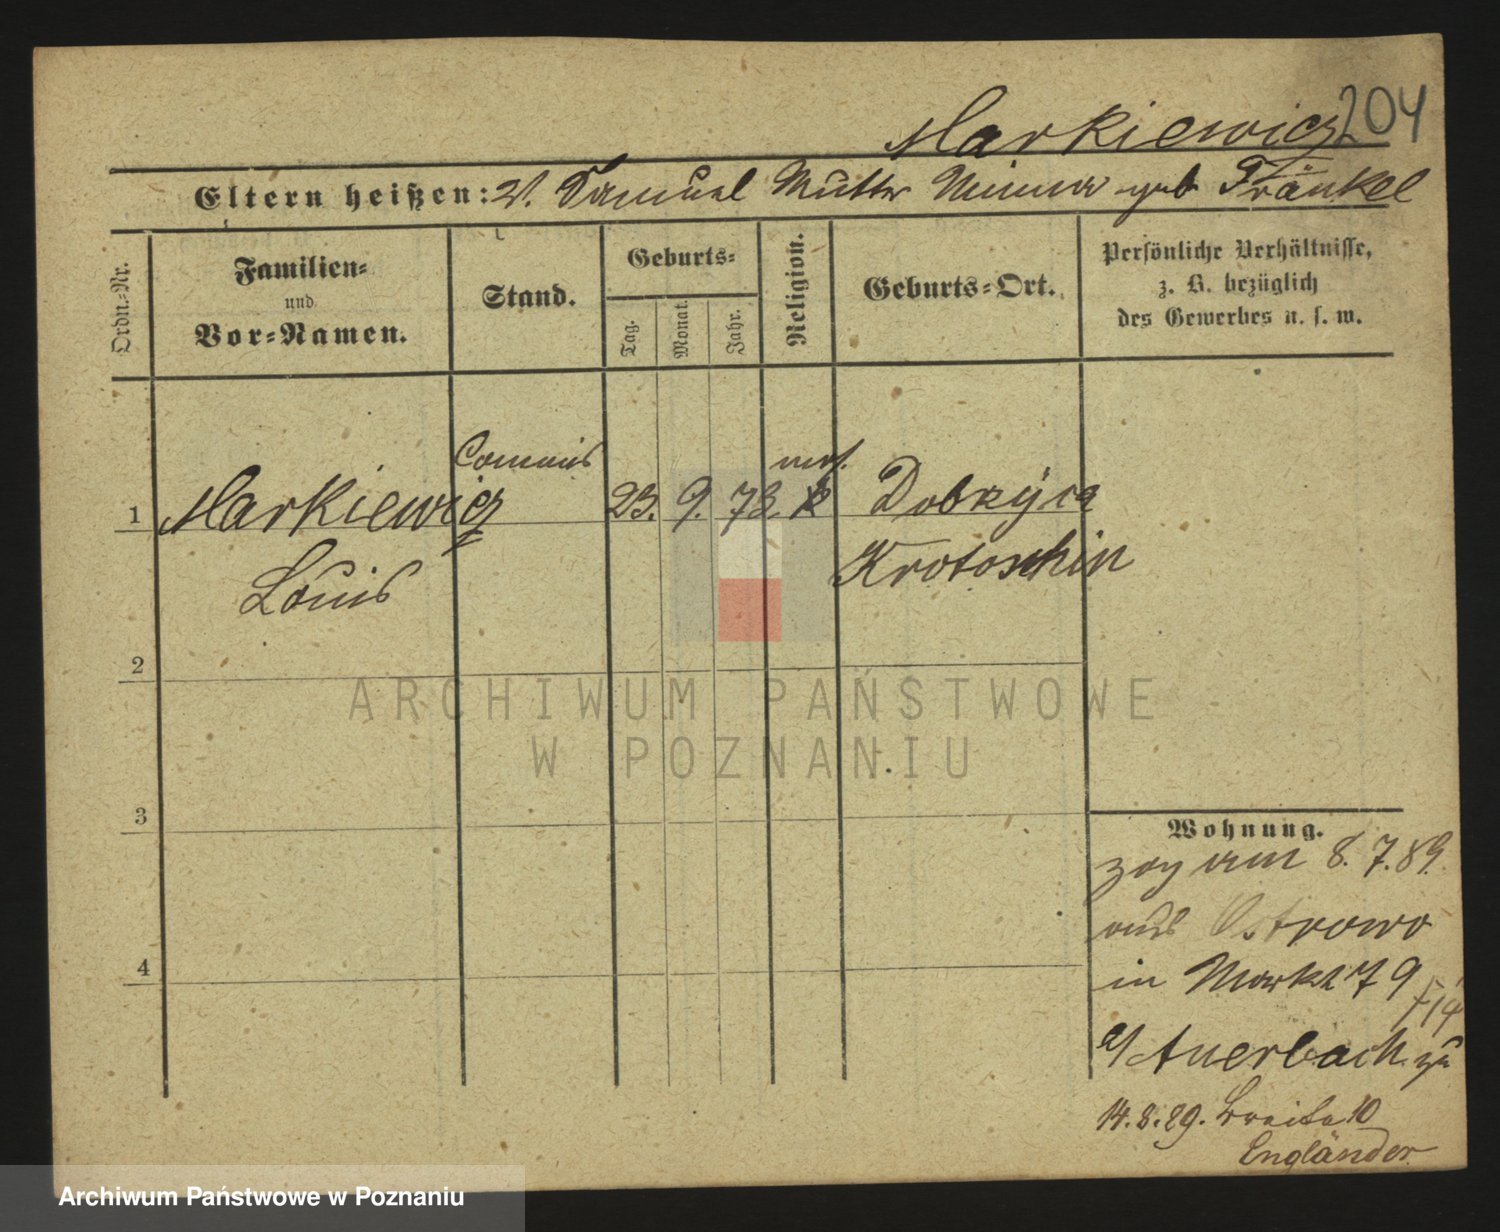 204
Markiewicz
Eltern heißen: V. Samuel Mutter Minna geb Fränkel
Ordn.-Nr.
Familien-
und
Vor-Namen.
Stand.
Geburts-
Tag.
Monat.
Jahr.
Religion.
Geburts-Ort.
Persönliche Verhältnisse,
z. B. bezüglich
des Gewerbes u. s. w.
1 Markiewicz Commis 23. 9. 73. mos. Dobrzyca
Louis Krotoschin
2
3
4
Wohnung.
zog am 8. 7. 89.
aus Ostrowo
in Markt 79
b/ Auerbach zu
14.8.89. Breite 10
Engländer
ARCHIWUM PAŃSTWOWE
W POZNANIU
Archiwum Państwowe w Poznaniu